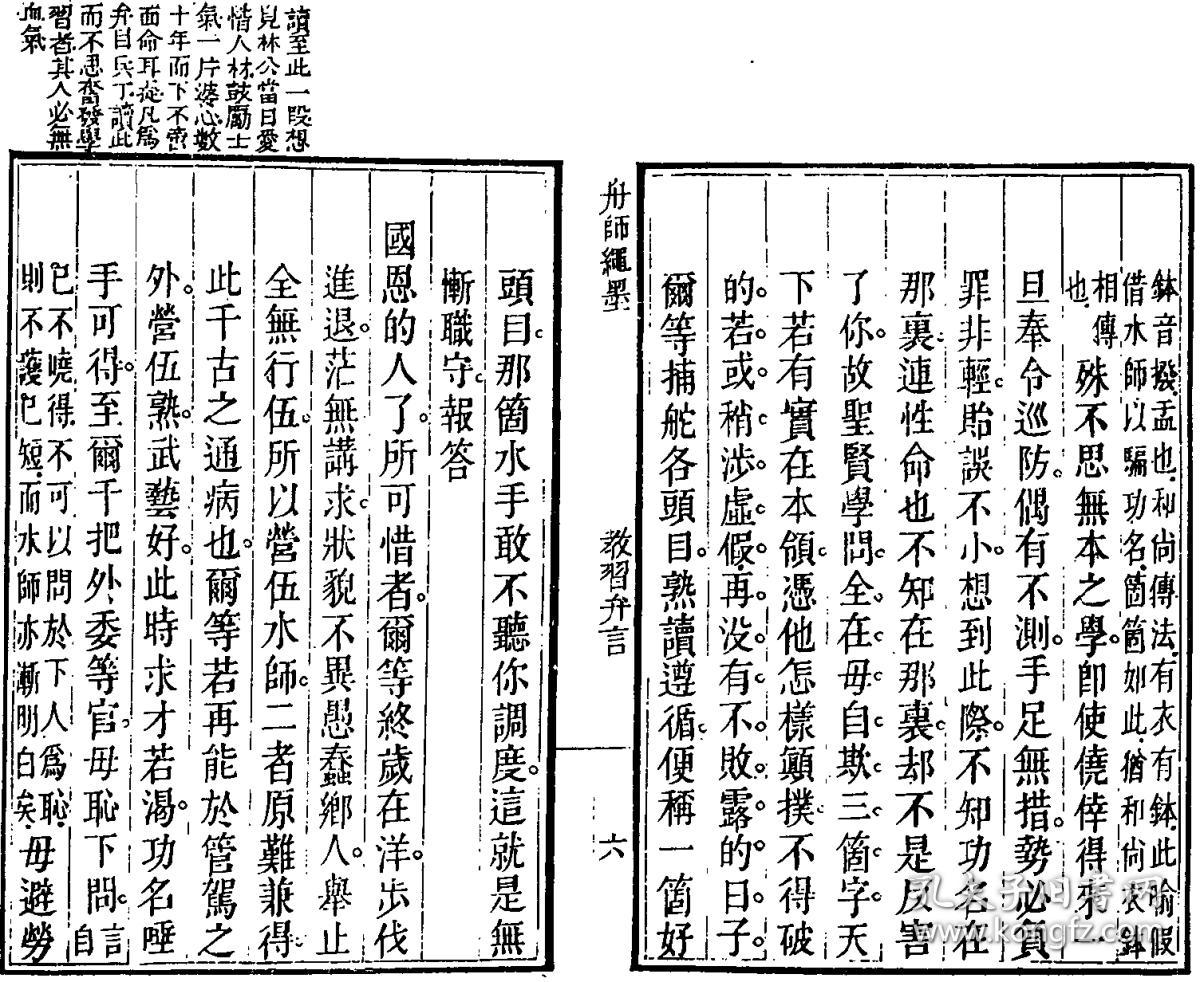 鉢音撥。盂也。和尚傳法。有衣有鉢。此喻假
借水師以騙功名。箇箇如此。猶和尚衣鉢
相傳也。
殊不思無本之學。卽使僥倖得來。一
旦奉令巡防。偶有不測。手足無措。勢必負
罪非輕。貽誤不小。想到此際。不知功名在
那裏。連性命也不知在那裏。却不是反害
了你。故聖賢學問。全在毋自欺三箇字。天
下若有實在本領。憑他怎樣顚撲不得破
的。若或稍涉虛假。再没有不敗露的日子。
爾等捕舵各頭目。熟讀遵循。便稱一箇好
舟師繩墨
教習弁言
六
頭目。那箇水手敢不聽你調度。這就是無
慚職守。報答
國恩的人了。所可惜者。爾等終歲在洋。步伐
進退。茫無講求。狀貌不異愚蠢鄉人。舉止
全無行伍。所以營伍水師。二者原難兼得。
此千古之通病也。爾等若再能於管駕之
外。營伍熟。武藝好。此時求才若渴。功名唾
手可得。至爾千把外委等官。毋恥下問。
言自
己不曉得。不可以問於下人爲恥。
則不護己短。而水師亦漸明白矣。
毋避勞
讀至此一段想
見林公當日愛
惜人材鼓勵士
氣一片婆心數
十年而下不啻
面命耳提凡爲
弁目兵丁讀此
而不思奮發學
習者其人必無
血氣
孔夫子旧书网
www.kongfz.com